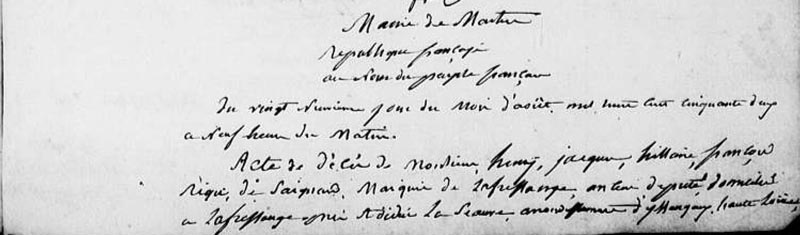 Mairie de
republique françoise
au Nom du peuple françois
Du vingt Neuvieme jour du Mois d'août mil huit cent cinquante deux
a Neuf heures du Matin.
Acte de décés de Monsieur henry, jacques hillaire, françois
Régis, de Saignard, Marquis de Lafressange, ancien deputé domicilié
a Lafressange St didier La Seauve, arrondissement d'yssengeaux, haute Loire,